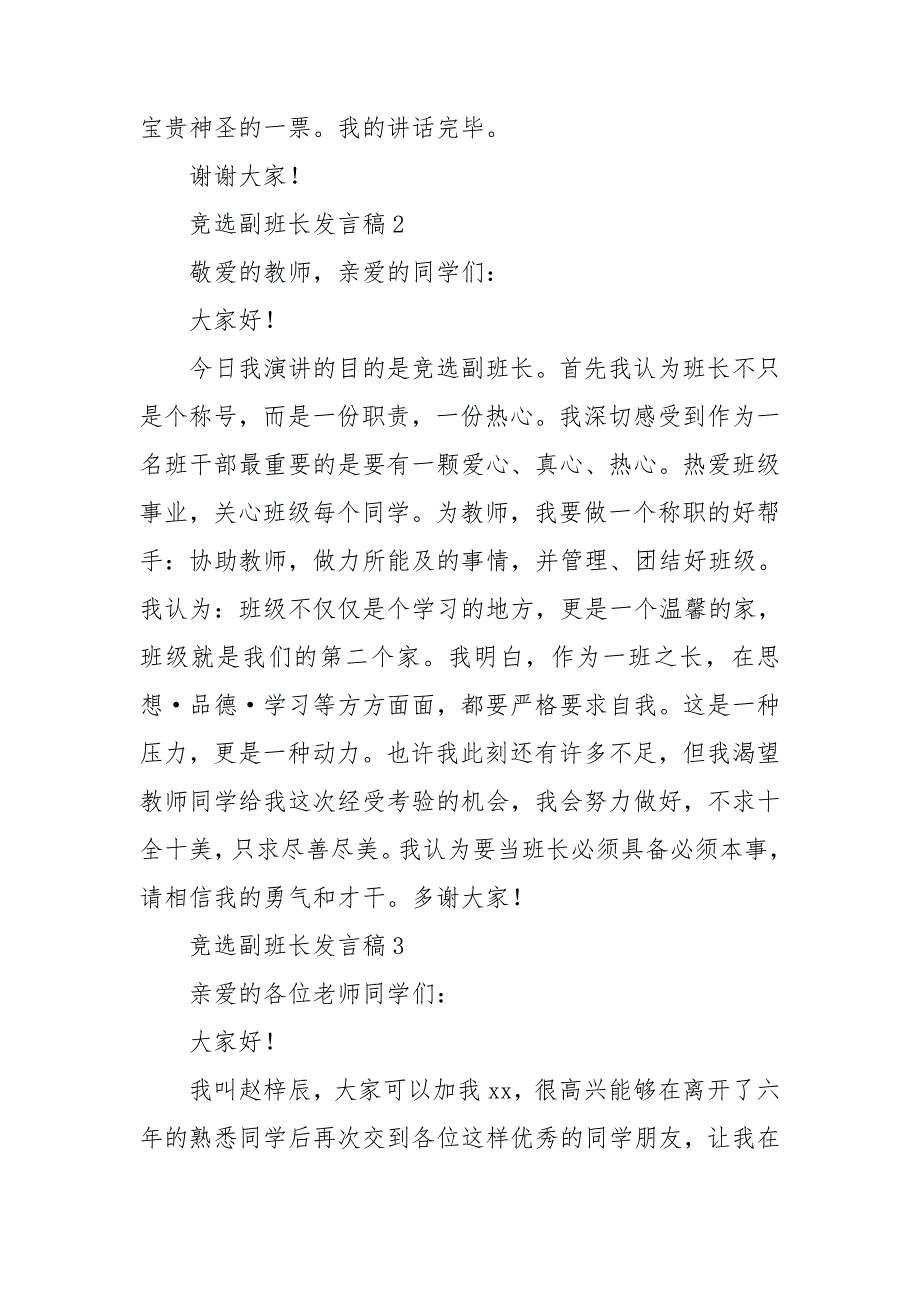 宝贵神圣的一票。我的讲话完毕。
谢谢大家！
竞选副班长发言稿2
敬爱的教师，亲爱的同学们：
大家好！
今日我演讲的目的是竞选副班长。首先我认为班长不只
是个称号，而是一份职责，一份热心。我深切感受到作为一
名班干部最重要的是要有一颗爱心、真心、热心。热爱班级
事业，关心班级每个同学。为教师，我要做一个称职的好帮
手：协助教师，做力所能及的事情，并管理、团结好班级。
我认为：班级不仅仅是个学习的地方，更是一个温馨的家，
班级就是我们的第二个家。我明白，作为一班之长，在思
想·品德·学习等方方面面，都要严格要求自我。这是一种
压力，更是一种动力。也许我此刻还有许多不足，但我渴望
教师同学给我这次经受考验的机会，我会努力做好，不求十
全十美，只求尽善尽美。我认为要当班长必须具备必须本事，
请相信我的勇气和才干。多谢大家！
竞选副班长发言稿3
亲爱的各位老师同学们：
大家好！
我叫赵梓辰，大家可以加我xx，很高兴能够在离开了六
年的熟悉同学后再次交到各位这样优秀的同学朋友，让我在